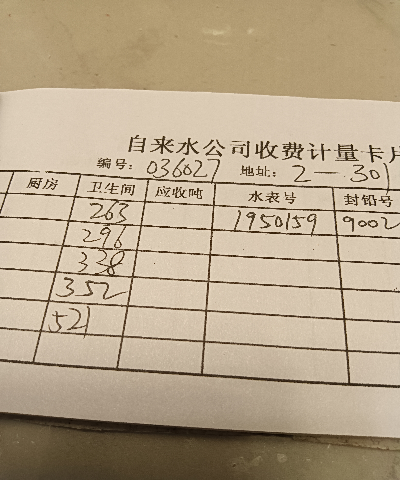 自来水公司收费计量卡片
编号: 036027 地址: 2-301
厨房 卫生间 应收吨 水表号 封铅号
263 1950159 9002
296
338
352
521